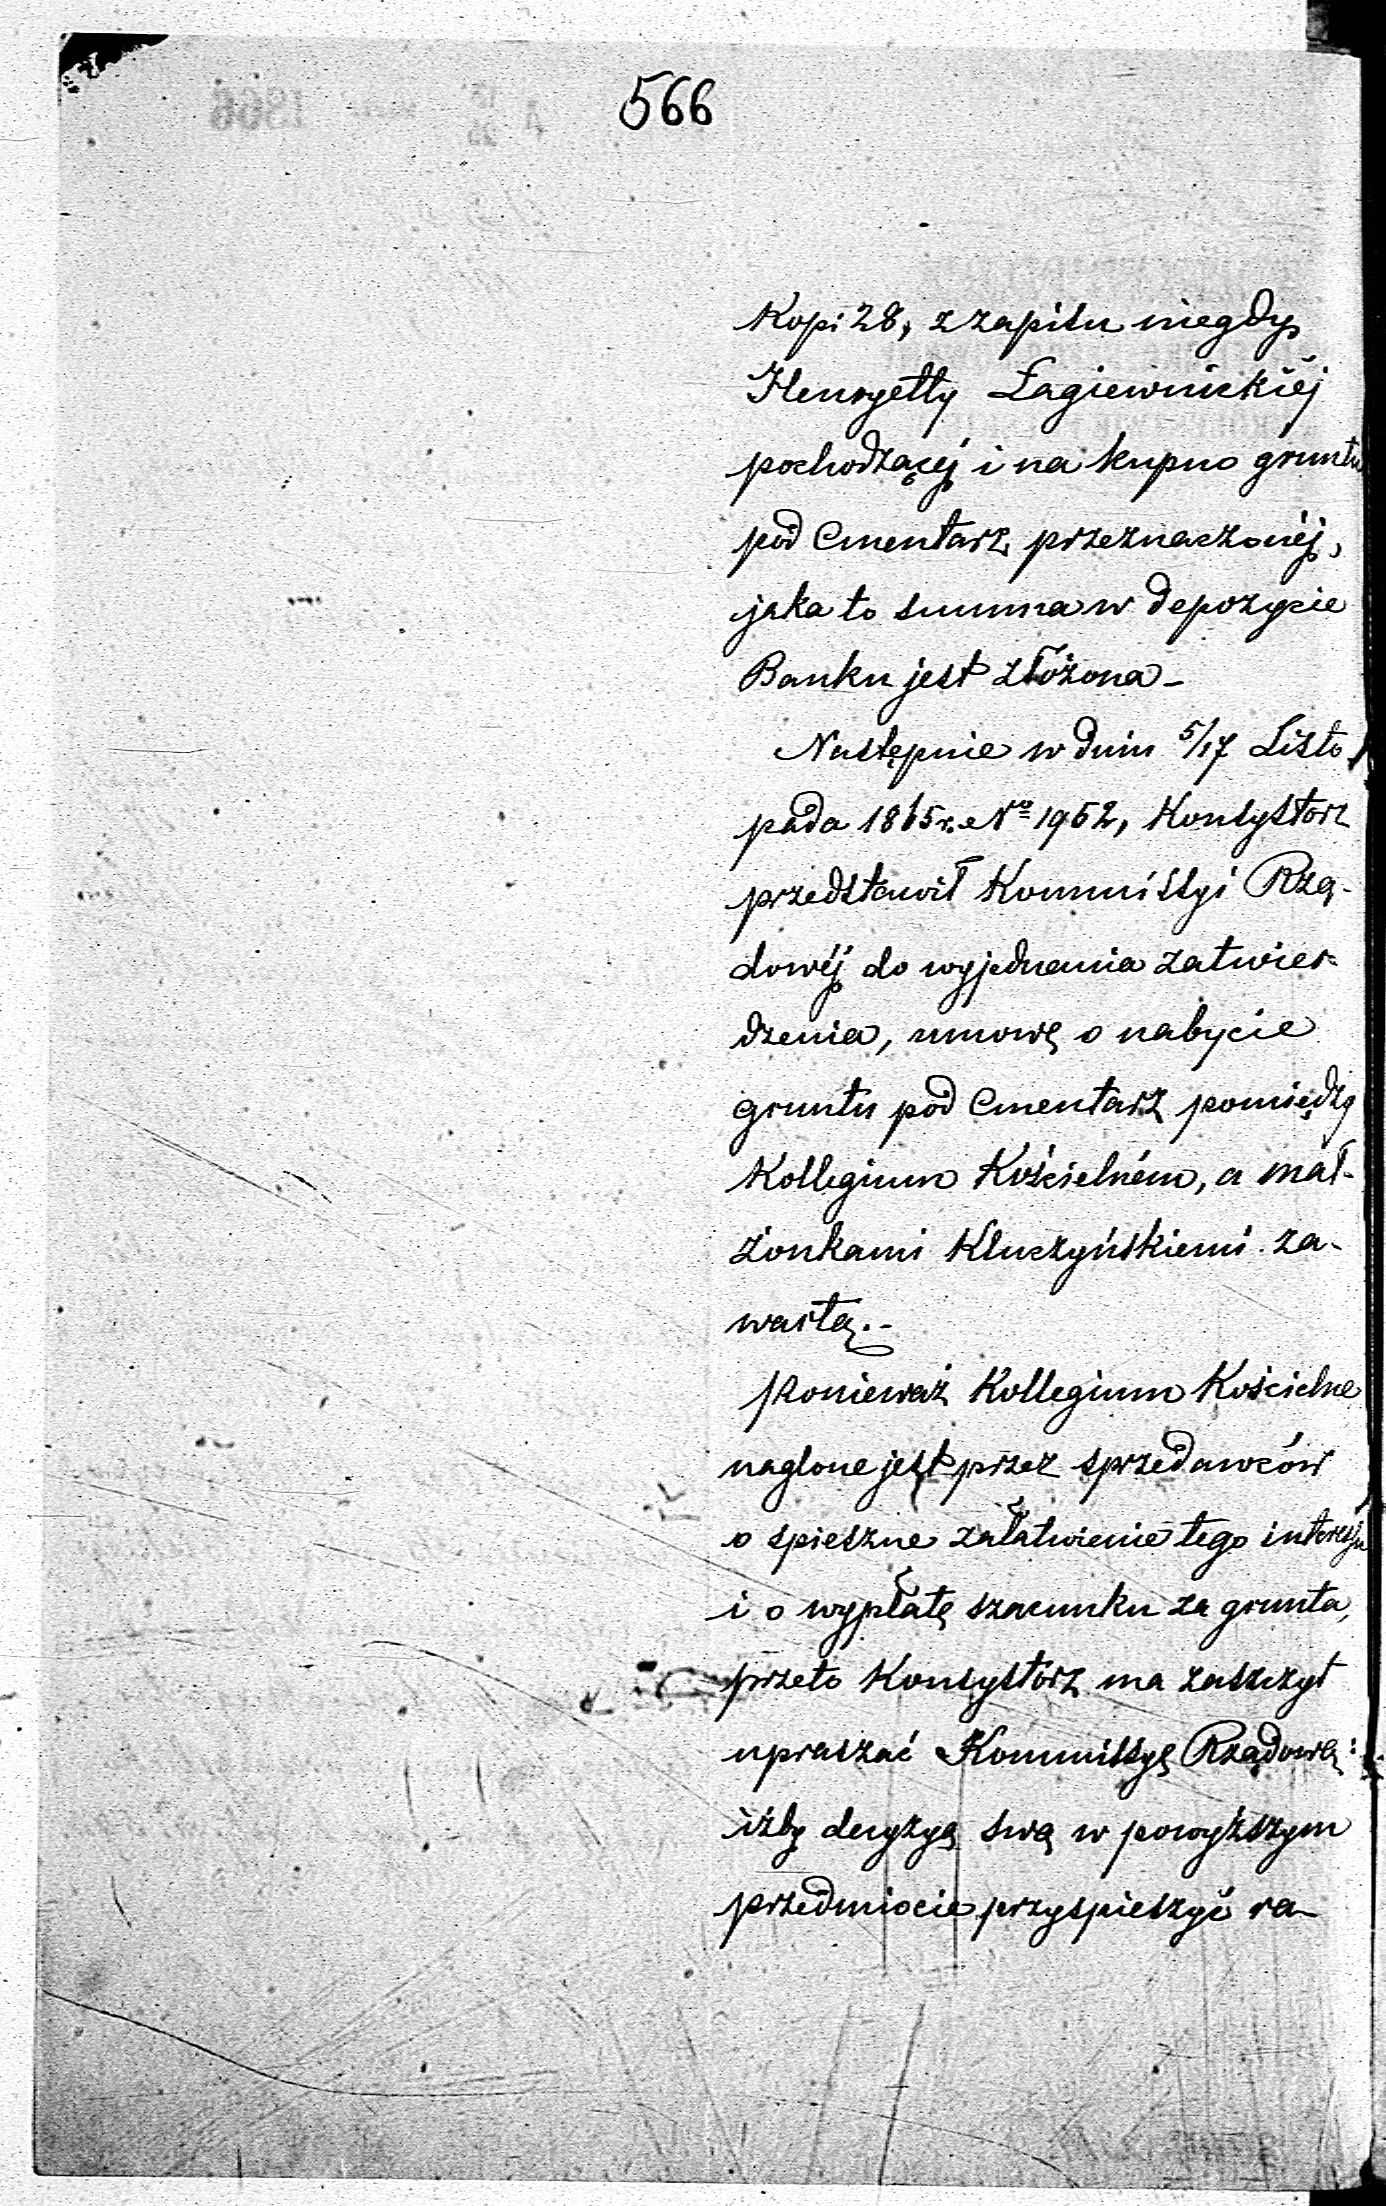 566
Kopi 28, z zapisu niegdy
Henryetty Łagiewnickiéj
pochodzącéj i na kupno gruntu
pod Cmentarz przeznaczonéj,
jaka to summa w depozycie
Banku jest złożona -
Następnie w dniu 5/17 Listo
pada 1865 r. No 1952, Konsystorz
przedstawił Kommissyi Rzą-
dowéj do wyjednania zatwier-
dzenia, umowę o nabycie
gruntu pod Cmentarz pomiędzy
Kollegium Kościelném, a mał-
żonkami Kluczyńskiemi za-
wartą.-
Ponieważ Kollegium Kościelne
naglone jest przez sprzedawców
o spieszne załatwienie tego interesu
i o wypłatę szacunku za grunta,
przeto Konsystorz ma zaszczyt
upraszać Kommissyę Rządową:
iżby decyzyą swą w powyższym
przedmiocie przyspieszyć ra-